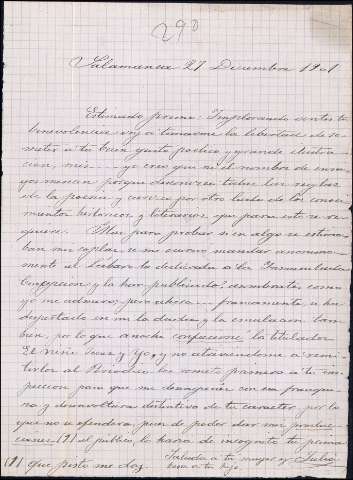 290
Salamanca 27 Diciembre 1901
Estimado primo: Implorando antes tu
benevolencia voy á tomarme la libertad de so-
meter á tu buen gusto poético y grande ilustra-
cion, mis — yo creo que ni el nombre de ensa-
yos merecen porque desconozco todas las reglas
de la poesia y carezco por otro lado de los conoci-
mientos historicos y literarios que para esto se re-
quiere. Mas para probar si en algo se estima-
ban mis coplas se me ocurrió mandar anonima-
mente al Lábaro la dedicada a la Inmaculada
Concepcion y la han publicado;
yo me admiro; pero ahora — francamente se ha
despertado en mi la duda y la emulacion tam-
bien, por lo que anoche confeccioné la titulada
El niño Jesus y Yo, y no atreviendome á remi-
tirlas al Periódico las someto primero a tu ins-
peccion para que me desengañes con esa franque-
za y desenvoltura distintivo de tu caracter por lo
que no se ofenderá, pues de poder dar mis produc-
ciones (1) al publico, lo haria de incognito tu primo
(1) que pisto me doy. Saluda a tu mujer y Julio
besa a tu hijo.